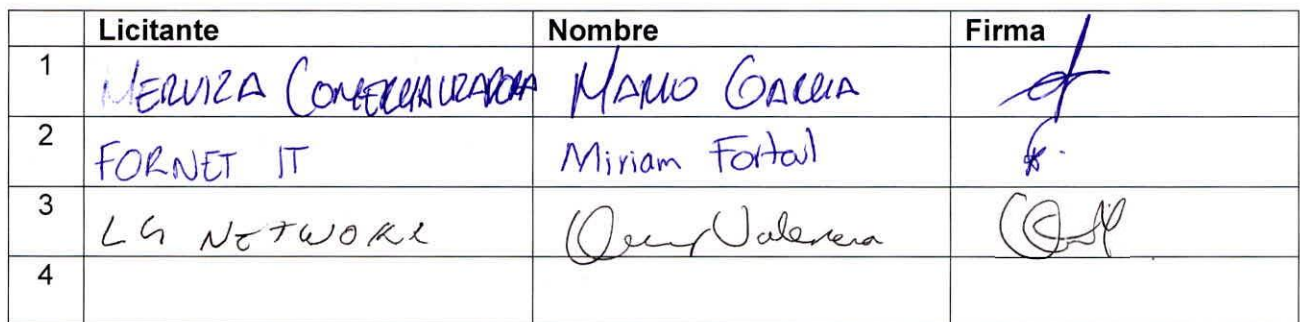 Licitante Nombre Firma
1 MERVIZA COMERCIALIZADORA MARIO GARCIA
2 FORNET IT Miriam
3 LG NETWORK Valenzuela
4